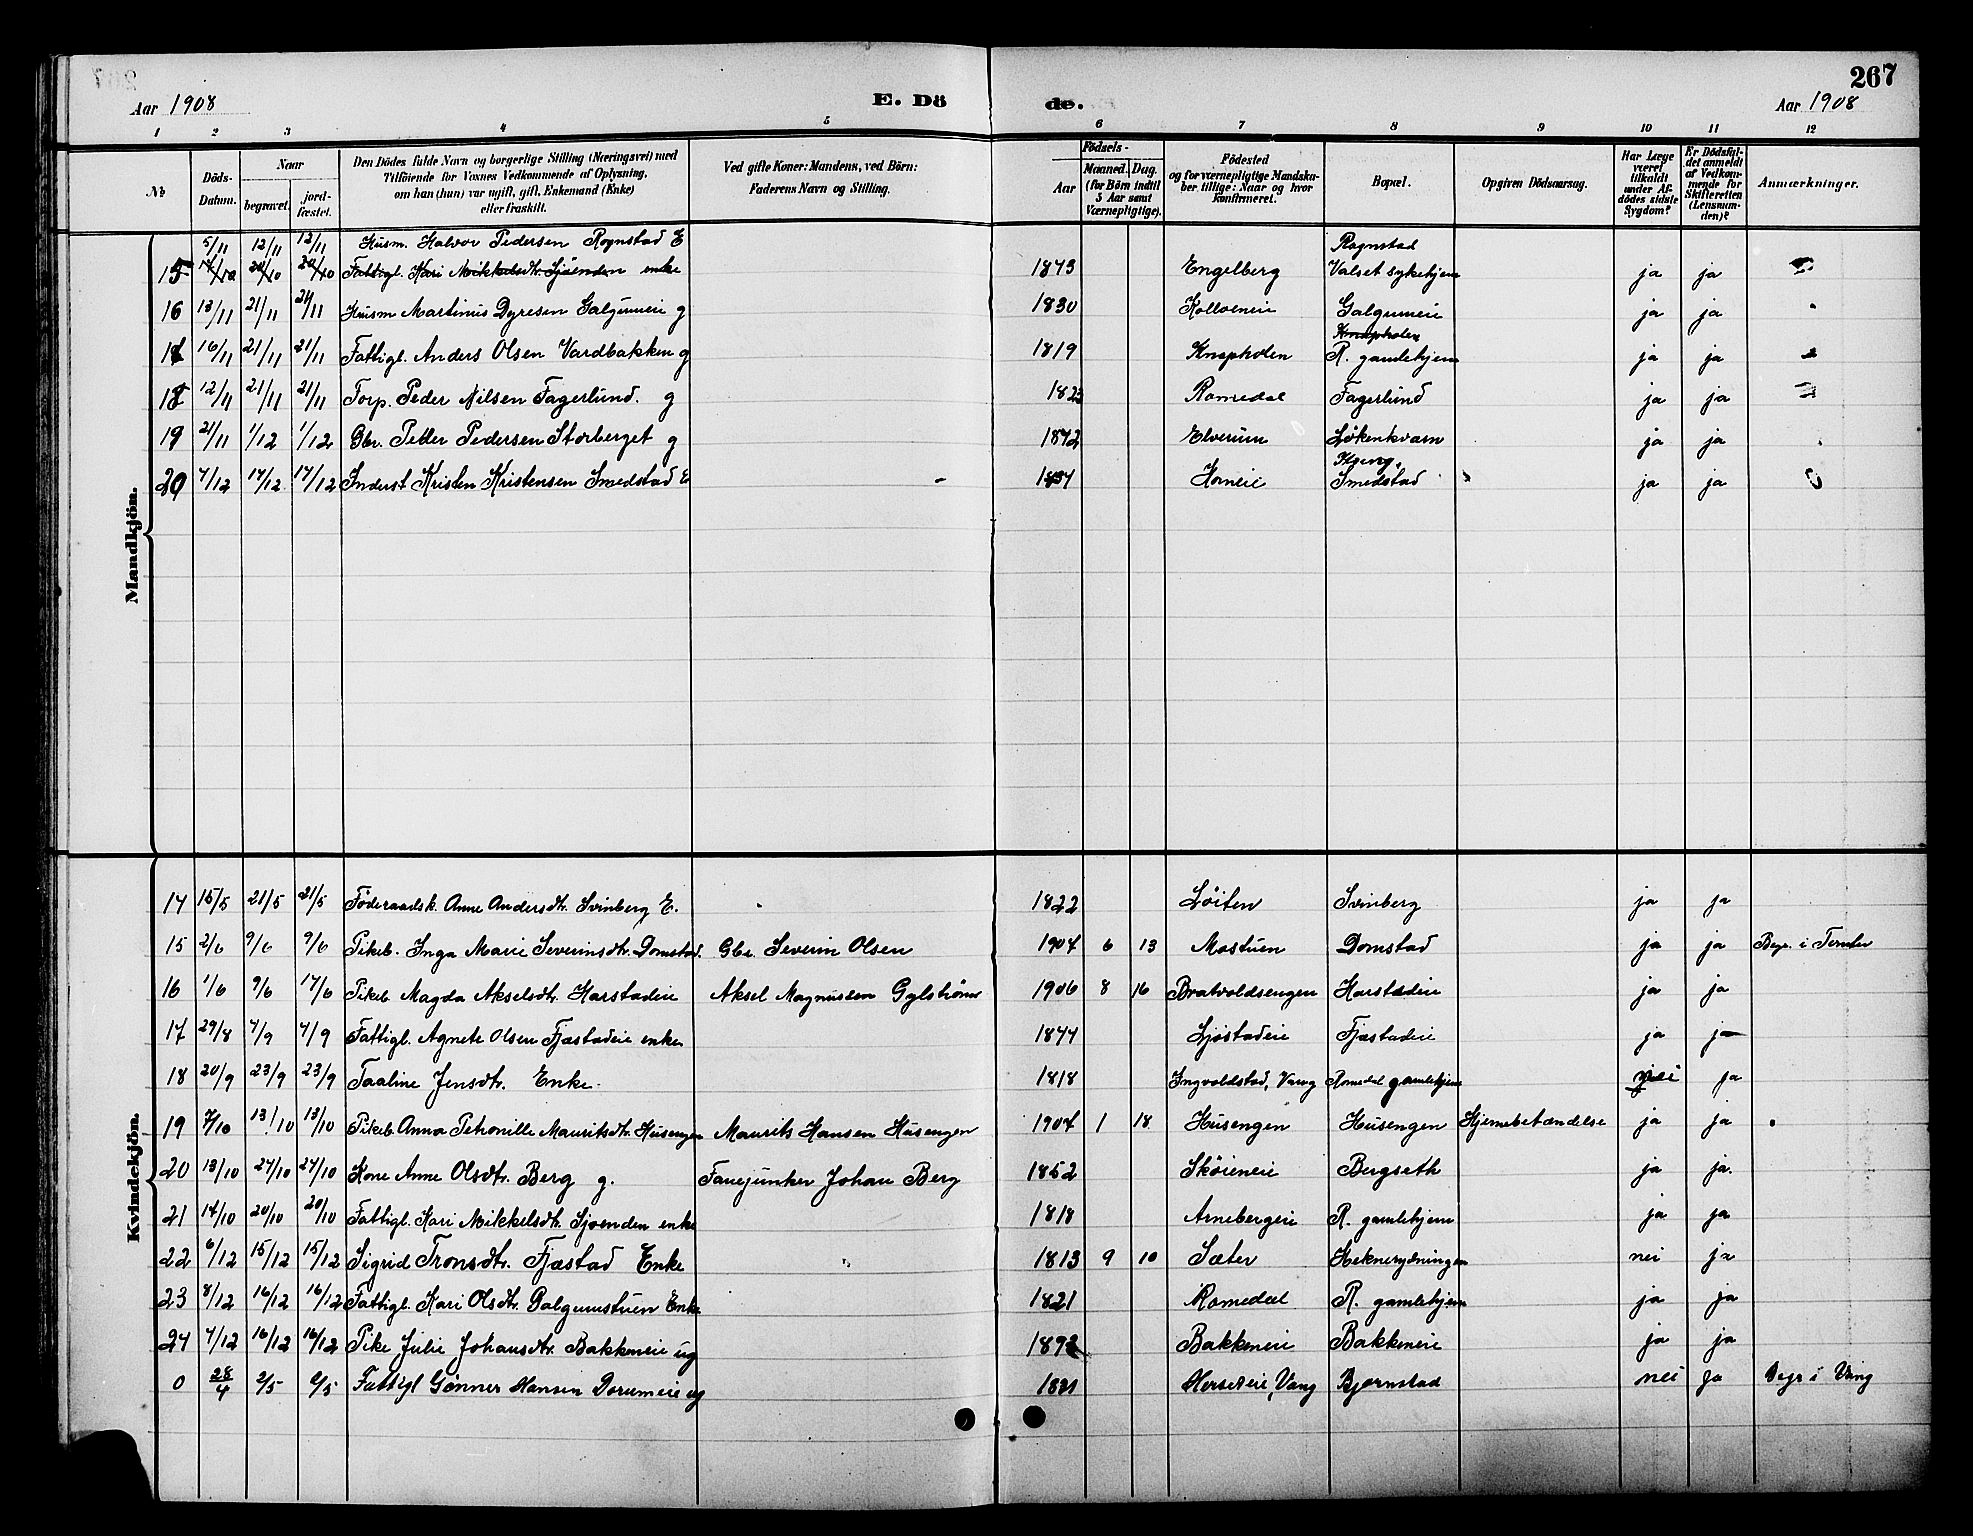 267
Aar 1908 E. Dö de. Aar 1908
1 2 3 4 5 6 7 8 9 10 11 12
№ Döds-Datum. Naar begravet. jord-fæstet. Den Dödes fulde Navn og borgerlige Stilling (Næringsvei) med Tilföiende for Voxnes Vedkommende af Oplysning, om han (hun) var ugift, gift, Enkemand (Enke) eller fraskilt. Ved gifte Koner: Mandens, ved Börn: Faderens Navn og Stilling. Födsels- Aar Maaned. Dag. (for Börn indtil 5 Aar samt Værnepligtige). Födested og for værnepligtige Mandska-ber tillige: Naar og hvor konfirmeret. Bopæl. Opgiven Dödsaarsag. Har Læge været tilkaldt under Af-dödes sidste Sygdom? Er Dödsfal-det anmeldt af Vedkom-mende for Skifteretten (Lensman-den)? Anmærkninger.
Mandkjön.
5/11 12/11 12/11 Husm. Halvor Pedersen Rognstad E Rognstad
15 14/10 20/10 20/10 Fattigl. Kari Mikkelsdtr. Sjöenden enke 1843 Engelberg Valset sykehjem ja ja
16 13/11 21/11 21/11 Husm Martinus Dyresen Galgumeie g 1830 Kolloeneie Galgumeie ja ja
Knapholen
17 16/11 21/11 21/11 Fattigl. Anders Olsen Vardbakken g 1819 Knapholen R. gamlehjem ja ja
18 12/11 21/11 21/11 Torp. Peder Nilsen Fagerlund. g 1823 Romedal Fagerlund ja ja
19 21/11 1/12 1/12 Gbr. Peder Pedersen Storberget g 1842 Elverum Løkenkvarn ja ja
20 7/12 17/12 17/12 Inderst Kristen Kristensen Smedstad E 1834 Horneie Smedstad ja ja
Kvindekjön.
14 15/5 21/5 21/5 Føderaadsk. Anne Andersdtr. Svinberg E. 1822 Løiten Svinberg ja ja
15 2/6 9/6 9/6 Pikeb. Inga Marie Severinsdtr. Domstad. Gbr. Severin Olsen 1904 6 13 Mostuen Domstad ja ja Begr. i Tomter
16 1/6 9/6 17/6 Pikeb Magda Akselsdtr. Harstadeie Aksel Magnussen Gylstrøm 1906 8 16 Bratvoldsengen Harstadeie ja ja
17 29/8 4/9 4/9 Fattigl. Agnete Olsen Fjæstadeie enke 1844 Ljøstadeie Fjæstadeie ja ja
18 20/9 23/9 23/9 Taaline Jensdtr. Enke. 1818 Ingvoldstad, Vang Romedal gamlehjem nei ja
19 7/10 13/10 13/10 Pikeb. Anna Petronille Mauritsdtr. Husengen Maurits Hansen Husengen 1904 1 18 Husengen Husengen Hjernebetændelse ja ja
20 13/10 24/10 24/10 Kone Anne Olsdtr. Berg g. Fanejunker Johan Berg 1852 Skøieneie Bergseth ja ja.
21 14/10 20/10 20/10 Fattigl. Kari Mikkelsdtr. Sjøenden enke 1818 Arnebergeie R. gamlehjem ja ja
22 6/12 15/12 15/12 Sigrid Tronsdtr. Fjæstad Enke 1813 9 10 Sæter Heknerydningen nei ja
23 8/12 16/12 16/12 Fattigl. Kari Olsdtr. Galgumstuen Enke 1821 Romedal R. gamlehjem ja ja
24 7/12 16/12 16/12 Pike Julie Johansdtr. Bakkeneie ug 1892 Bakkeneie Bakkeneie ja ja
0 28/4 2/5 2/5 Fattigl Gønner Hansen Dorumeie ug 1821 Herseteie, Vang Bjørnstad nei ja Begr i Vang